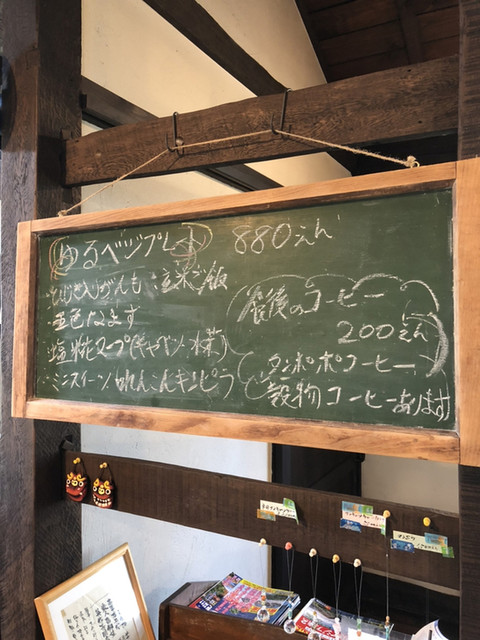 ゆるベジプレート 880えん
・ひじき入りがんも ・玄米ご飯
・五色なます
・塩糀スープ(キャベツ・水菜)
・ミニスイーツ・れんこんキンピラ
食後のコーヒー
200えん
タンポポコーヒー
穀物コーヒーあります